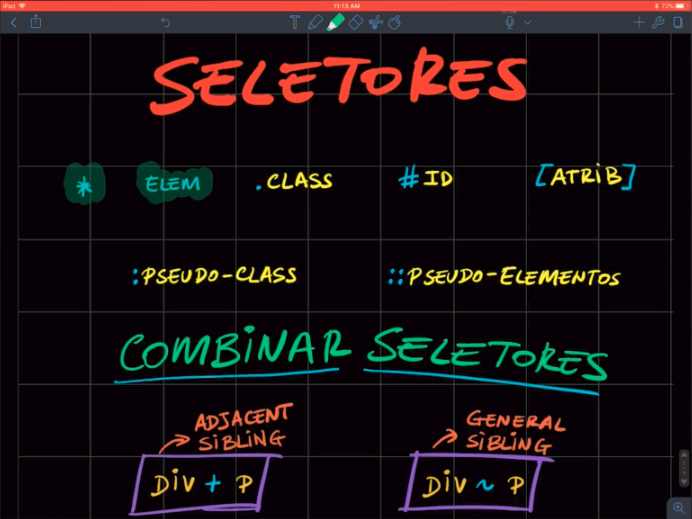 iPad
11:13 AM
72%
SELETORES
* ELEM .CLASS #ID [ATRIB]
:PSEUDO-CLASS ::PSEUDO-ELEMENTOS
COMBINAR SELETORES
ADJACENT SIBLING
GENERAL SIBLING
DIV + P
DIV ~ P